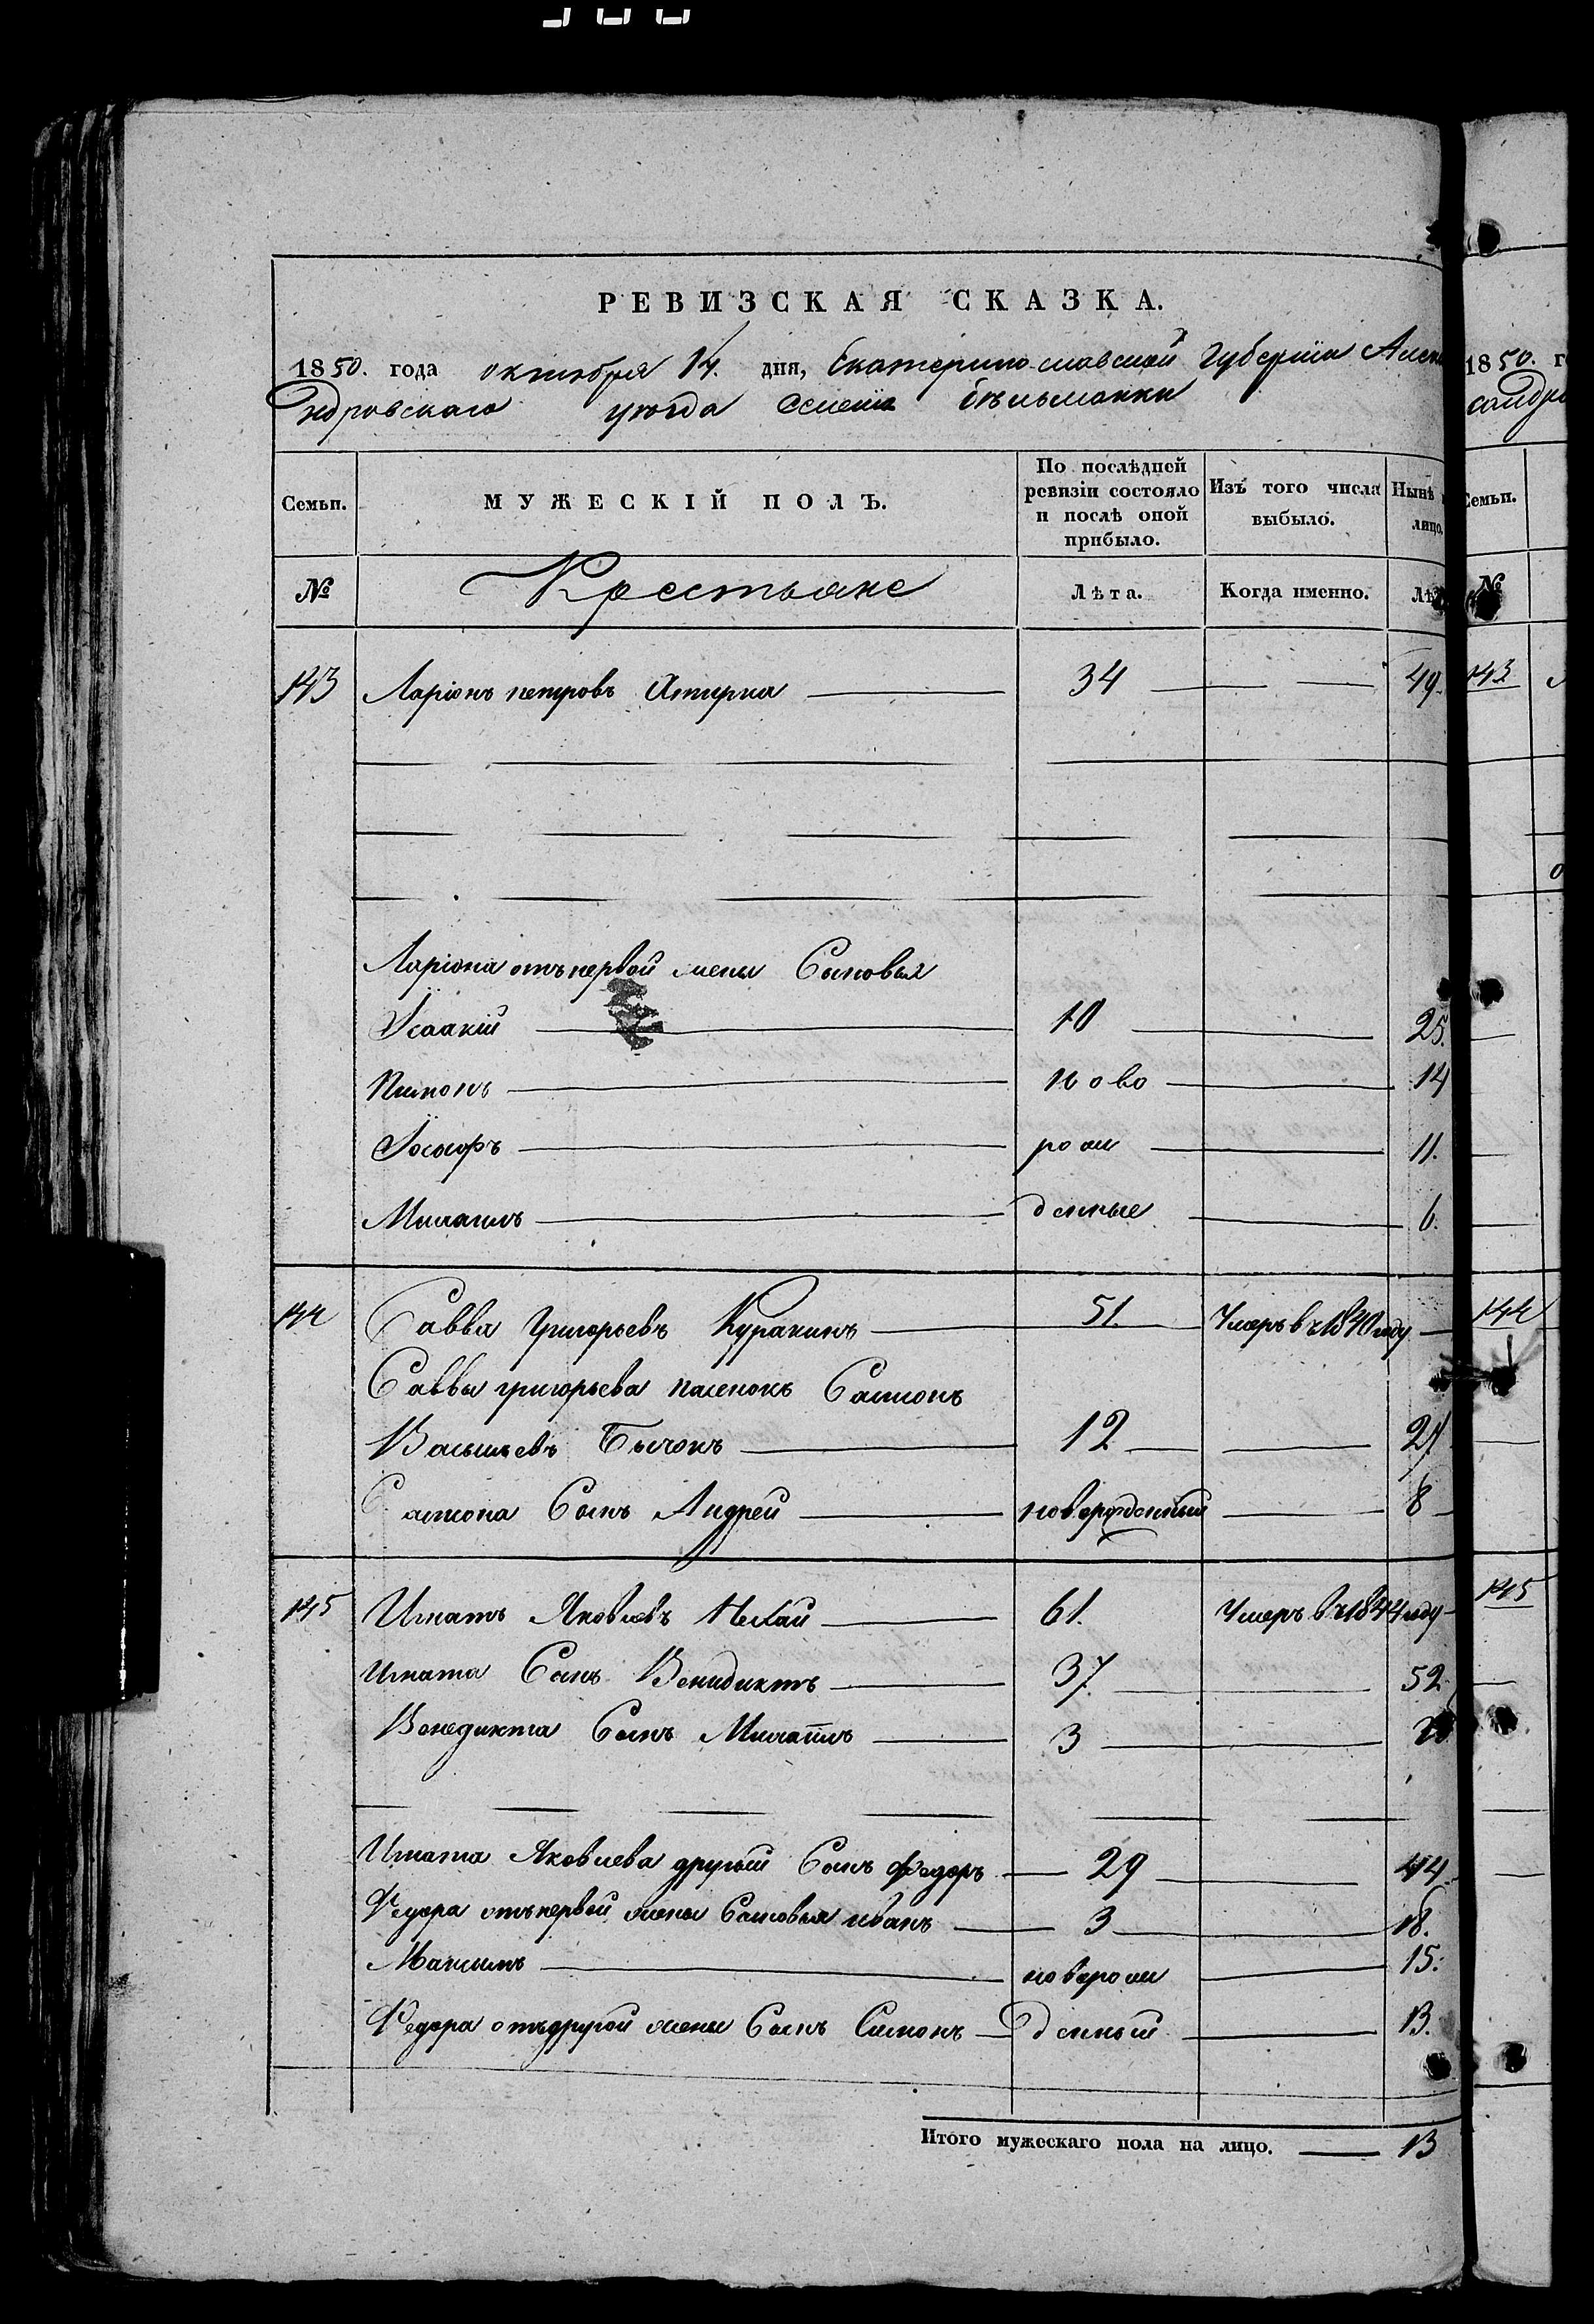 РЕВИЗСКАЯ СКАЗКА.
1850. года октября 14. дня, Екатеринославской Губерніи Алекса
ндровскаго уѣзда Селенія бѣльманки
Семьи.
МУЖЕСКІЙ ПОЛЪ.
По послѣдней ревизіи состояло и послѣ оной прибыло.
Изъ того числа выбыло.
Нынѣ
лицо.
№
Крестьяне
Лѣта.
Когда именно.
Лѣ
143 Ларіонъ петровъ 34 49.
Ларіона отъ первой жены Сыновья
Ісаакій 10 25.
Пимонъ ново 14
Іосифъ рож 11.
Михаилъ денные 6.
144 Савва Григорьевъ Куракинъ 51. Умеръ въ 1840 году
Саввы григорьева пасенокъ Самсонъ
Васильевъ Бычокъ 12 27
Самсона Сынъ Андрей новорожденный 8
145 Игнатъ Яковлевъ Нехай 61. Умеръ въ 1844 году
Игната Сынъ Венидиктъ 37. 52
Венедикта Сынъ Михаилъ 3
Игната Яковлева другой Сынъ Федоръ 29 44.
Федора отъ первой жены Сыновья иванъ 3 18.
Максимъноворож 15.
Федора отъ другой жены Сынъ Симонъ денный 13.
Итого мужескаго пола на лицо. 13
1850. г
сандро
Семьи.
№
143
144
145